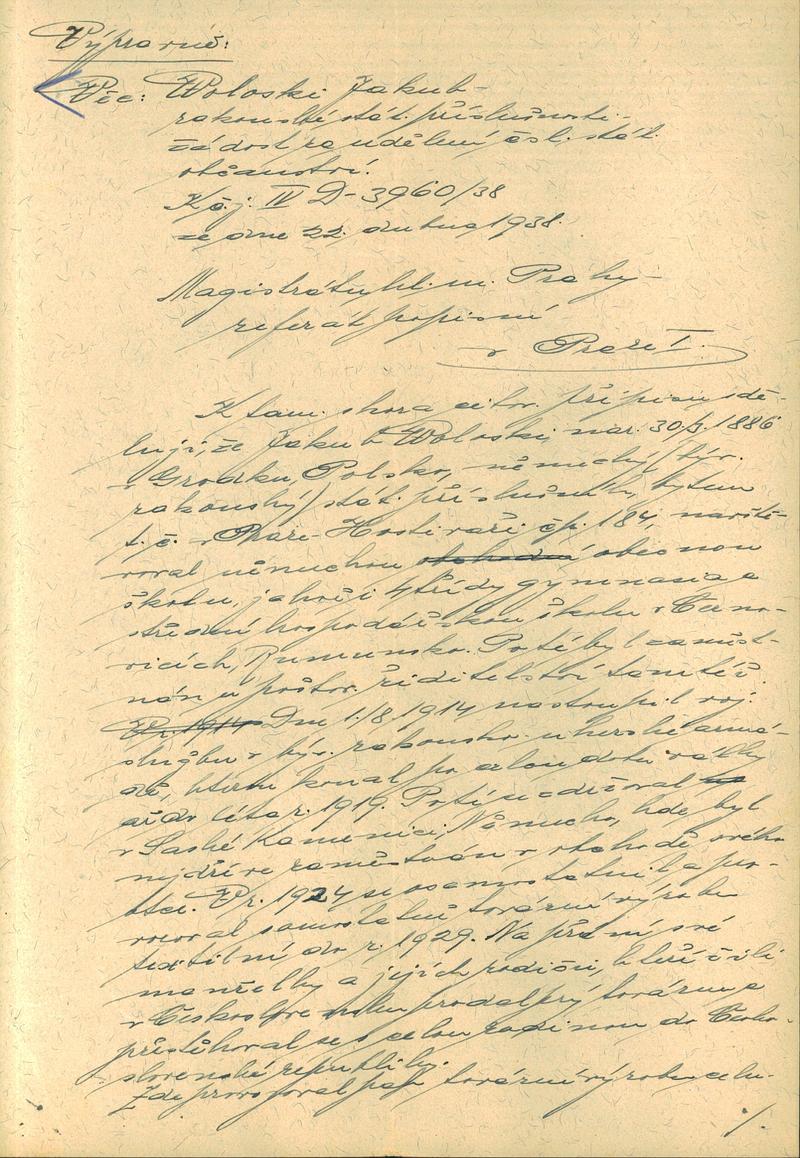 Výpravně:
Věc: Woloski Jakub-
rakouské stát. příslušnosti-
žádost za udělení čsl. stát.
občanství.
K č.j. IV D-3960/38
ze dne 22. dubna 1938.
Magistrátu hl. m. Prahy-
referát popisní
v Praze I.
K tam. shora citov. přípisu sdě-
luji, že Jakub Woloski, nar. 30/9. 1886
v Grodku, Polsko, německý /býv.
rakouský/ stát. příslušník, bytem
t. č. v Praze-Hostivaři čp. 184, navště-
voval německou obchodní obecnou
školu, jakož i 4 třídy gymnasia a
střední hospodářskou školu v Černo-
vicích, Rumunsko. Poté byl zaměst-
nán u poštov. ředitelství tamtéž.
Vr. 1914 Dne 1./8. 1914 nastoupil voj.
službu v býv. rakousko-uherské armá-
dě, kterou konal po celou dobu války
až do léta r. 1919. Poté se zdržoval
v Saské Kamenici, Německo, kde byl
nejdříve zaměstnán v obchodě svého
otce. V r. 1924 se osamostatnil a pro-
vozoval samostatně tovární výrobu
textilní do r. 1929. Na přání své
manželky a jejích rodičů, kteří žili
v Československu prodal prý továrnu a
přestěhoval se s celou rodinou do Česko-
slovenské republiky.
Zde provozoval pak tovární výrobu celu-
./.